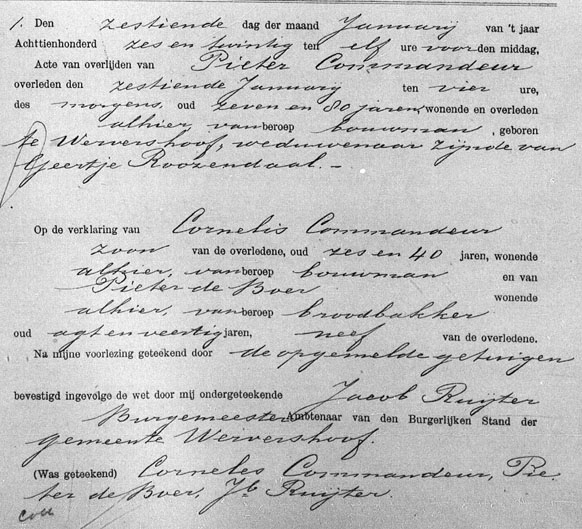 1. Den zestiende dag der maand Januarij van 't jaar
Achttienhonderd zes en twintig ten elf ure voorden middag,
Acte van overlijden van Pieter Commandeur
overleden den zestiende January ten vier ure,
des morgens, oud zeven en 80 jaren, wonende en overleden
alhier van beroep bouwman, geboren
te Wervershoof, weduwenaar zijnde van
Geertje Roozendaal. –
Op de verklaring van Cornelis Commandeur
zoon van de overledene, oud zes en 40 jaren, wonende
alhier, van beroep bouwman en van
Pieter de Boer wonende
alhier, van beroep broodbakker
oud agt en veertig jaren, neef van de overledene.
Na mijne voorlezing geteekend door de opgemelde getuigen
bevestigd ingevolge de wet door mij ondergeteekende Jacob Ruyter
Burgemeester Ambtenaar van den Burgerlijken Stand der
gemeente Wervershoof.
(Was geteekend) Cornelis Commandeur, Pie-
ter de Boer, Jb Ruijter.
Coll